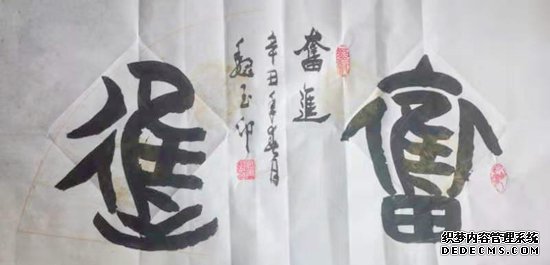 奮進
奮進
辛丑年春月
织梦内容管理系统
DEDECMS.COM